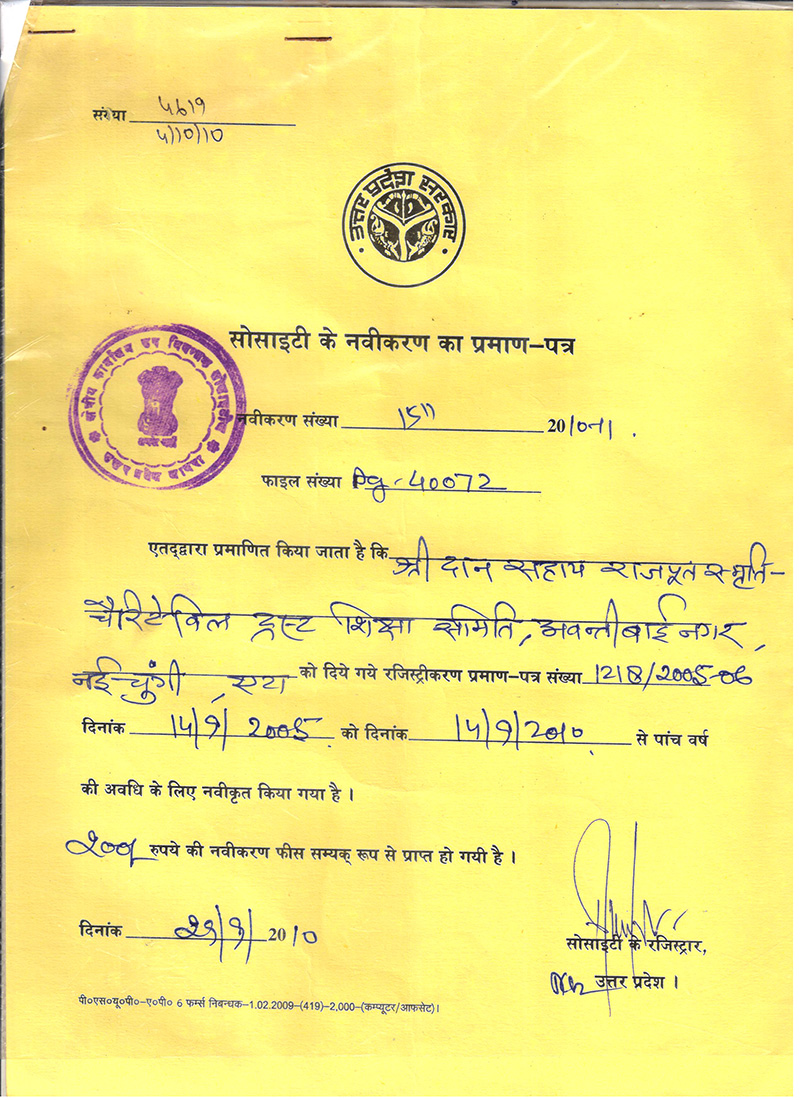 संख्या 4619
4/10/10
उत्तर प्रदेश सरकार
सोसाइटी के नवीकरण का प्रमाण–पत्र
क्षेत्रीय कार्यालय उप निबन्धक सोसाइटीज
उत्तर प्रदेश आगरा
नवीकरण संख्या 2010-11.
फाइल संख्या Ag-40072
एतद्द्वारा प्रमाणित किया जाता है कि श्री दान सहाय राजपूत स्मृति-
चैरिटेविल ट्रस्ट शिक्षा समिति, अवन्तीबाई नगर,
नई चुंगी, एटा को दिये गये रजिस्ट्रीकरण प्रमाण–पत्र संख्या 1218/2005-06
दिनांक 14/9/2005 को दिनांक 14/9/2010 से पांच वर्ष
की अवधि के लिए नवीकृत किया गया है ।
200/ रुपये की नवीकरण फीस सम्यक् रूप से प्राप्त हो गयी है ।
दिनांक 29/9/2010
सोसाइटी के रजिस्ट्रार,
उत्तर प्रदेश ।
पी०एस०यू०पी०–ए०पी० 6 फर्म्स निबन्धक–1.02.2009–(419)–2,000–(कम्प्यूटर/आफसेट)।